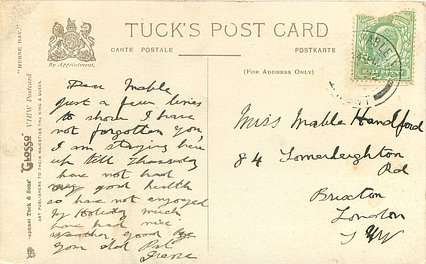 TUCK'S POST CARD
CARTE POSTALE
POSTKARTE
By Appointment.
(FOR ADDRESS ONLY)
"HERNE BAY."
RAPHAEL TUCK & SONS' "GLOSSO" VIEW POSTCARD
ART PUBLISHERS TO THEIR MAJESTIES THE KING & QUEEN.
Dear Mable
Just a few lines
to show I have
not forgotten you,
I am staying here
up till Thursday
have not had
very good health
so have not enjoyed
my holiday much
have had nice
weather, good bye
your old Pal
Irene
Miss Mable Handford
84 Somerleyton
Rd
Brixton
London
S W